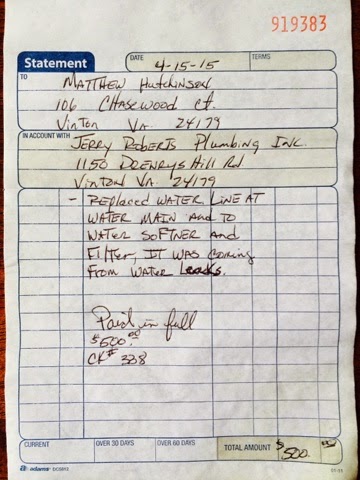 919383
Statement
DATE 4-15-15 TERMS
TO MATTHEW HutcHINSON
106 CHASEWOOD Ct.
VINTON VA. 24179
IN ACCOUNT WITH JERRY ROBERTS Plumbing INC.
1150 Hill Rd
VINTON VA. 24179
- REPlaced WATER LINE AT
WATER MAIN and to
WATER SOFTNER AND
FilteR, IT WAS COMING
FROM WATER LEAKS.
Paid in full
$500.00
CK# 338
CURRENT OVER 30 DAYS OVER 60 DAYS TOTAL AMOUNT $500.
adams DC5811